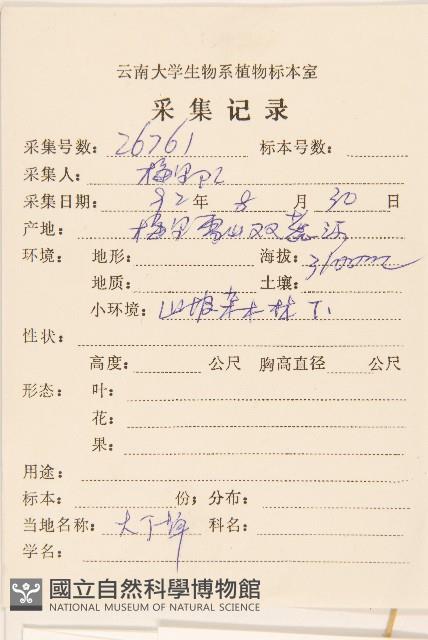 云南大学生物系植物标本室
采集记录
采集号数：26761 标本号数：
采集人：梅里队
采集日期： 年 8 月 30 日
产地：梅里雪山双 河
环境： 地形： 海拔：3100m
地质： 土壤：
小环境：山坡杂木林下
性状：
高度： 公尺 胸高直径 公尺
形态： 叶：
花：
果：
用途：
标本： 份；分布：
当地名称：大丁草 科名：
学名：
國立自然科學博物館
NATIONAL MUSEUM OF NATURAL SCIENCE